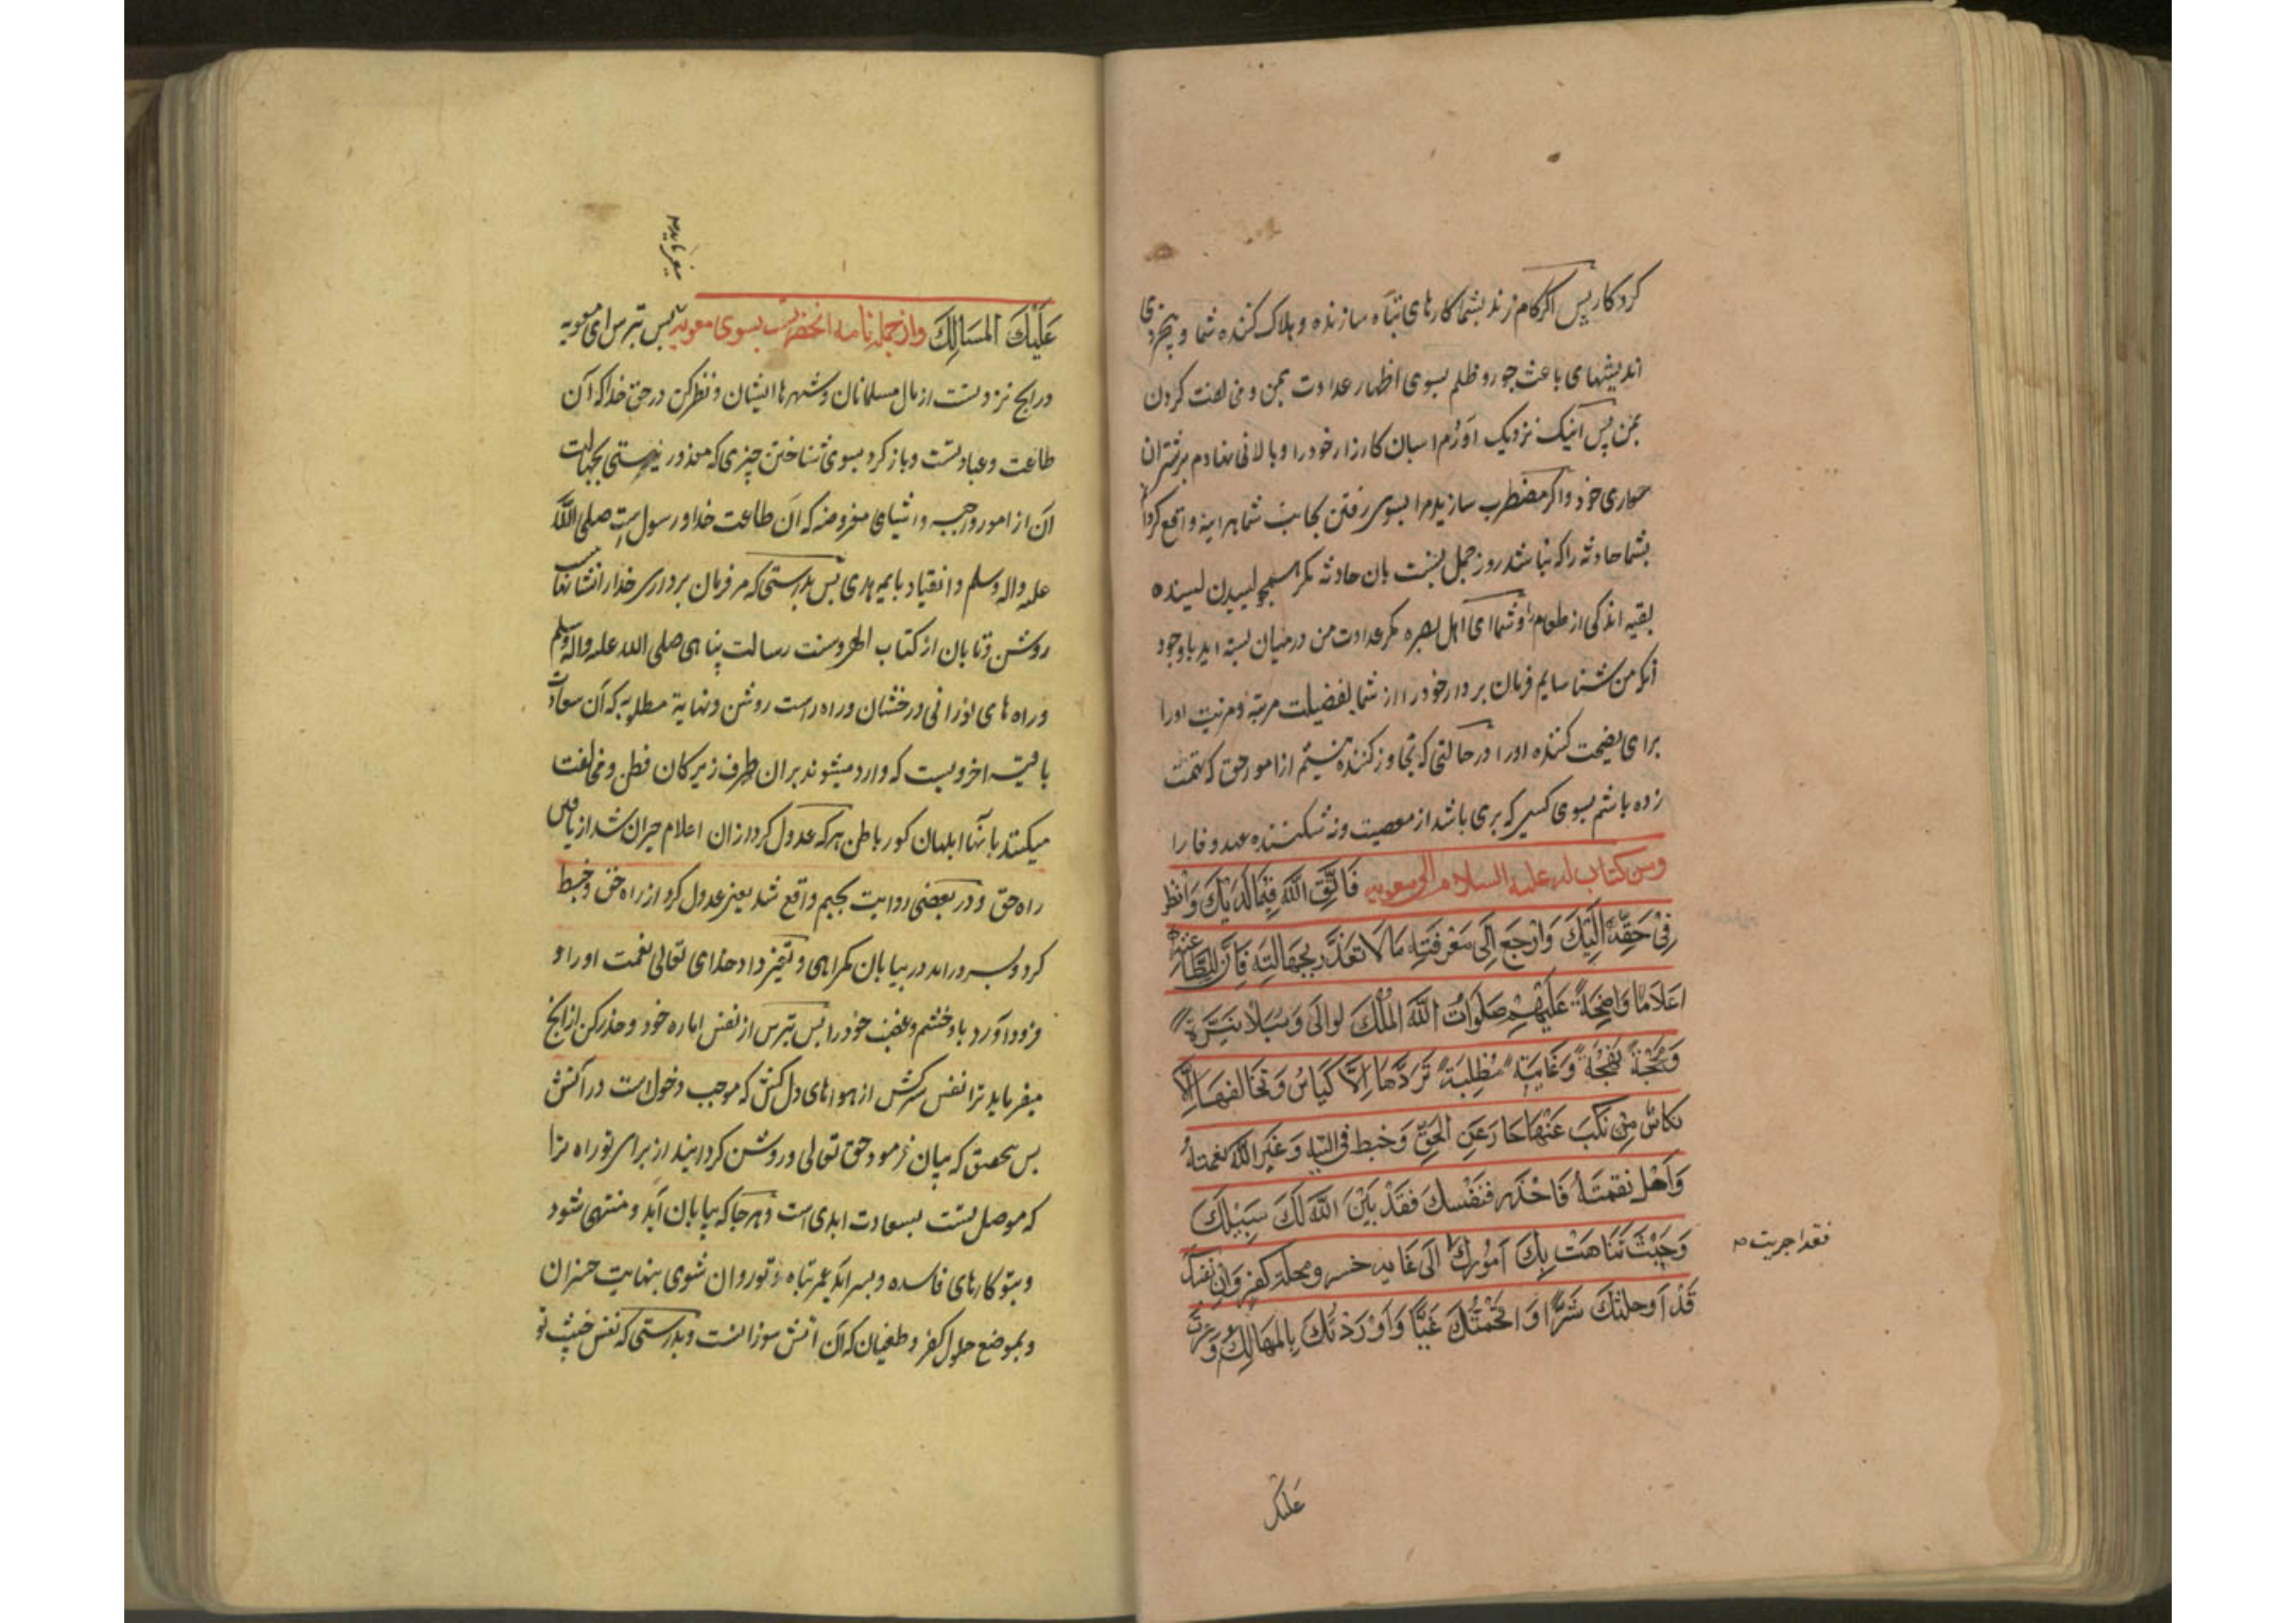 کردکار پس اگر کام زند بشما کارهای تباه سازنده و هلاک کننده شما و بیخردی
اندیشهای باعث جور و ظلم بسوی اظهار عداوت بمن و مخالفت کردن
بمن پس اینک نزدیک آوردم اسبان کارزار خود را و پالانی نهادم بر شتران
سواری خود و اگر مضطرب سازید مرا بسوی رفتن بجانب شما هراینه واقع کردانم
بشما حادثه را که نباشد روز جمل بنسبت بان حادثه مکر همچو لیسیدن لیسنده
بقیه اندکی از طعام را و شما ای اهل بصره مکر عداوت من درمیان بسته اید باوجود
آنکه من شناسایم فرمان بردار خود را از شما بفضیلت مرتبه و مزیت او را
برای نصیحت کننده او را درحالتی که تجاوز کننده نیستم از امور حق که تهمت
زده باشم بسوی کسی که بری باشد از معصیت و نه شکننده عهد وفا را
ومن کتاب له علیه السلام الی معویه فَاتَّقِ اللَّهَ فِیمَا لَدَیْكَ وَانْظُر
فِی حَقِّهِ اِلَیْكَ وَارْجِع اِلَی مَعْرِفَتِه مَا لَا تُعْذَر بِجَهَالَتِه فَاِنَّ لِلطَّاعَه
اَعْلَامًا وَاضِحَةً عَلَیْهِم صَلَوَاتُ اللَّه المَلِكَ لوالی وَ سُبُلًا نَیِّرَةً
وَمَحَجَّةً نَهْجَةً وَغَایَةً مُطْلِبَةً تَرِدُهَا الْاَکْیَاسُ وَتُخَالِفُهَا الْاَ
نکاس مَن نَکَبَ عَنْهَا جَارَ عَنِ الْحَقِّ وَخَبَطَ فِی التِّیهِ وَغَیَّرَ اللَّه نِعْمَتَهُ
وَاَحَلَّ نِقْمَتَهُ فَاحْذَر فَنَفْسَكَ فَقَدْ بَیَّنَ اللَّهُ لَكَ سَبِیلَكَ
وَحَیْثُ تَنَاهَتْ بِكَ اُمُورُكَ اِلَی غَایَه خسر ومحلة کفر وَاِن نفسك
قَدْ اَوحلتكَ شَرًّا وَاَقْحَمَتْكَ غَیًّا وَاَوْرَدَتْكَ بِالمَهَالِكَ وَوعرت
فقد اجریت
علیک
میفرماید
عَلَیْكَ المَسَالِكَ و از جمله نامه انحضرتست بسوی معویه پس بترس ای معویه
در آنچ نزد تست از مال مسلمانان و شهرها ایشان و نظر کن در حق خدا که آن
طاعت و عبادتست و باز کرد بسوی شناختن چیزی که معذور نیستی بجهالت
آن از امور واجبه و اشیای مفروضه که آن طاعت خدا و رسول ست صلی اللّه
علیه واله وسلم و انقیاد بایمه هدی پس بدرستی که مر فرمان برداری خدا را نشانها
روشن و تابان از کتاب الهی و سنت رسالت پناهی صلی الله علیه واله وسلم
و راه های نورانی درخشان و راه راست روشن و نهایة مطلبه که آن سعادات
باقیه اخرویست که وارد میشوند بران طرف زیرکان فطن و مخالفت
میکنند بآنها ابلهان کور باطن هرکه عدول کرد از ان اعلام حیران شد از یافتن
راه حق و در بعضی روایت بجیم واقع شد یعنی عدول کرد از راه حق و خبط
کرد و بسر درامد در بیابان کمراهی و تغیر داد خدای تعالی نعمت او را و
فرود آورد باو خشم و غضب خود را پس بترس از نفس اماره خود و حذر کن ازانچ
میفرماید ترا نفس سرکش از هواهای دل کش که موجب دخولست در اتش
پس بتحقیق که بیان فرمود حق تعالی و روشن کردانید از برای تو راه ترا
که موصل تست بسعادت ابدی است و هرجا که بپایان آید و منتهی شود
و بتو کارهای فاسده و بسر آید عمر تباه تو روان شوی بنهایت خسران
و بموضع حلول کفر و طغیان که آن آتش سوزانست و بدرستی که نفس خبیث تو